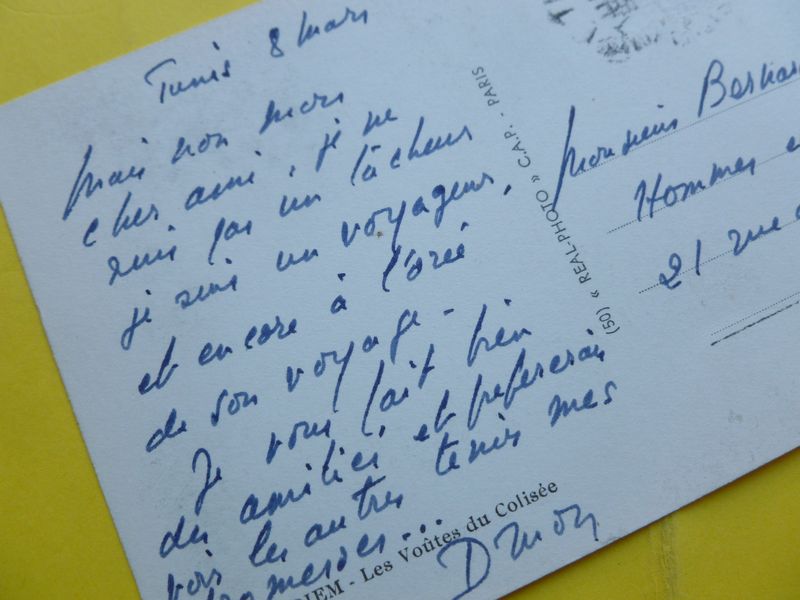 Tunis 8 Mars
Mais non mon
cher ami, je ne
suis pas un lâcheur
je suis un voyageur,
et encore à l'orée
de son voyage -
Je vous fait bien
des amitiés et prefererais
voir les autres tenir mes
promesses...
(50) « REAL-PHOTO » C.A.P. - PARIS
Monsieur
Hommes
21 rue
DJEM - Les Voûtes du Colisée